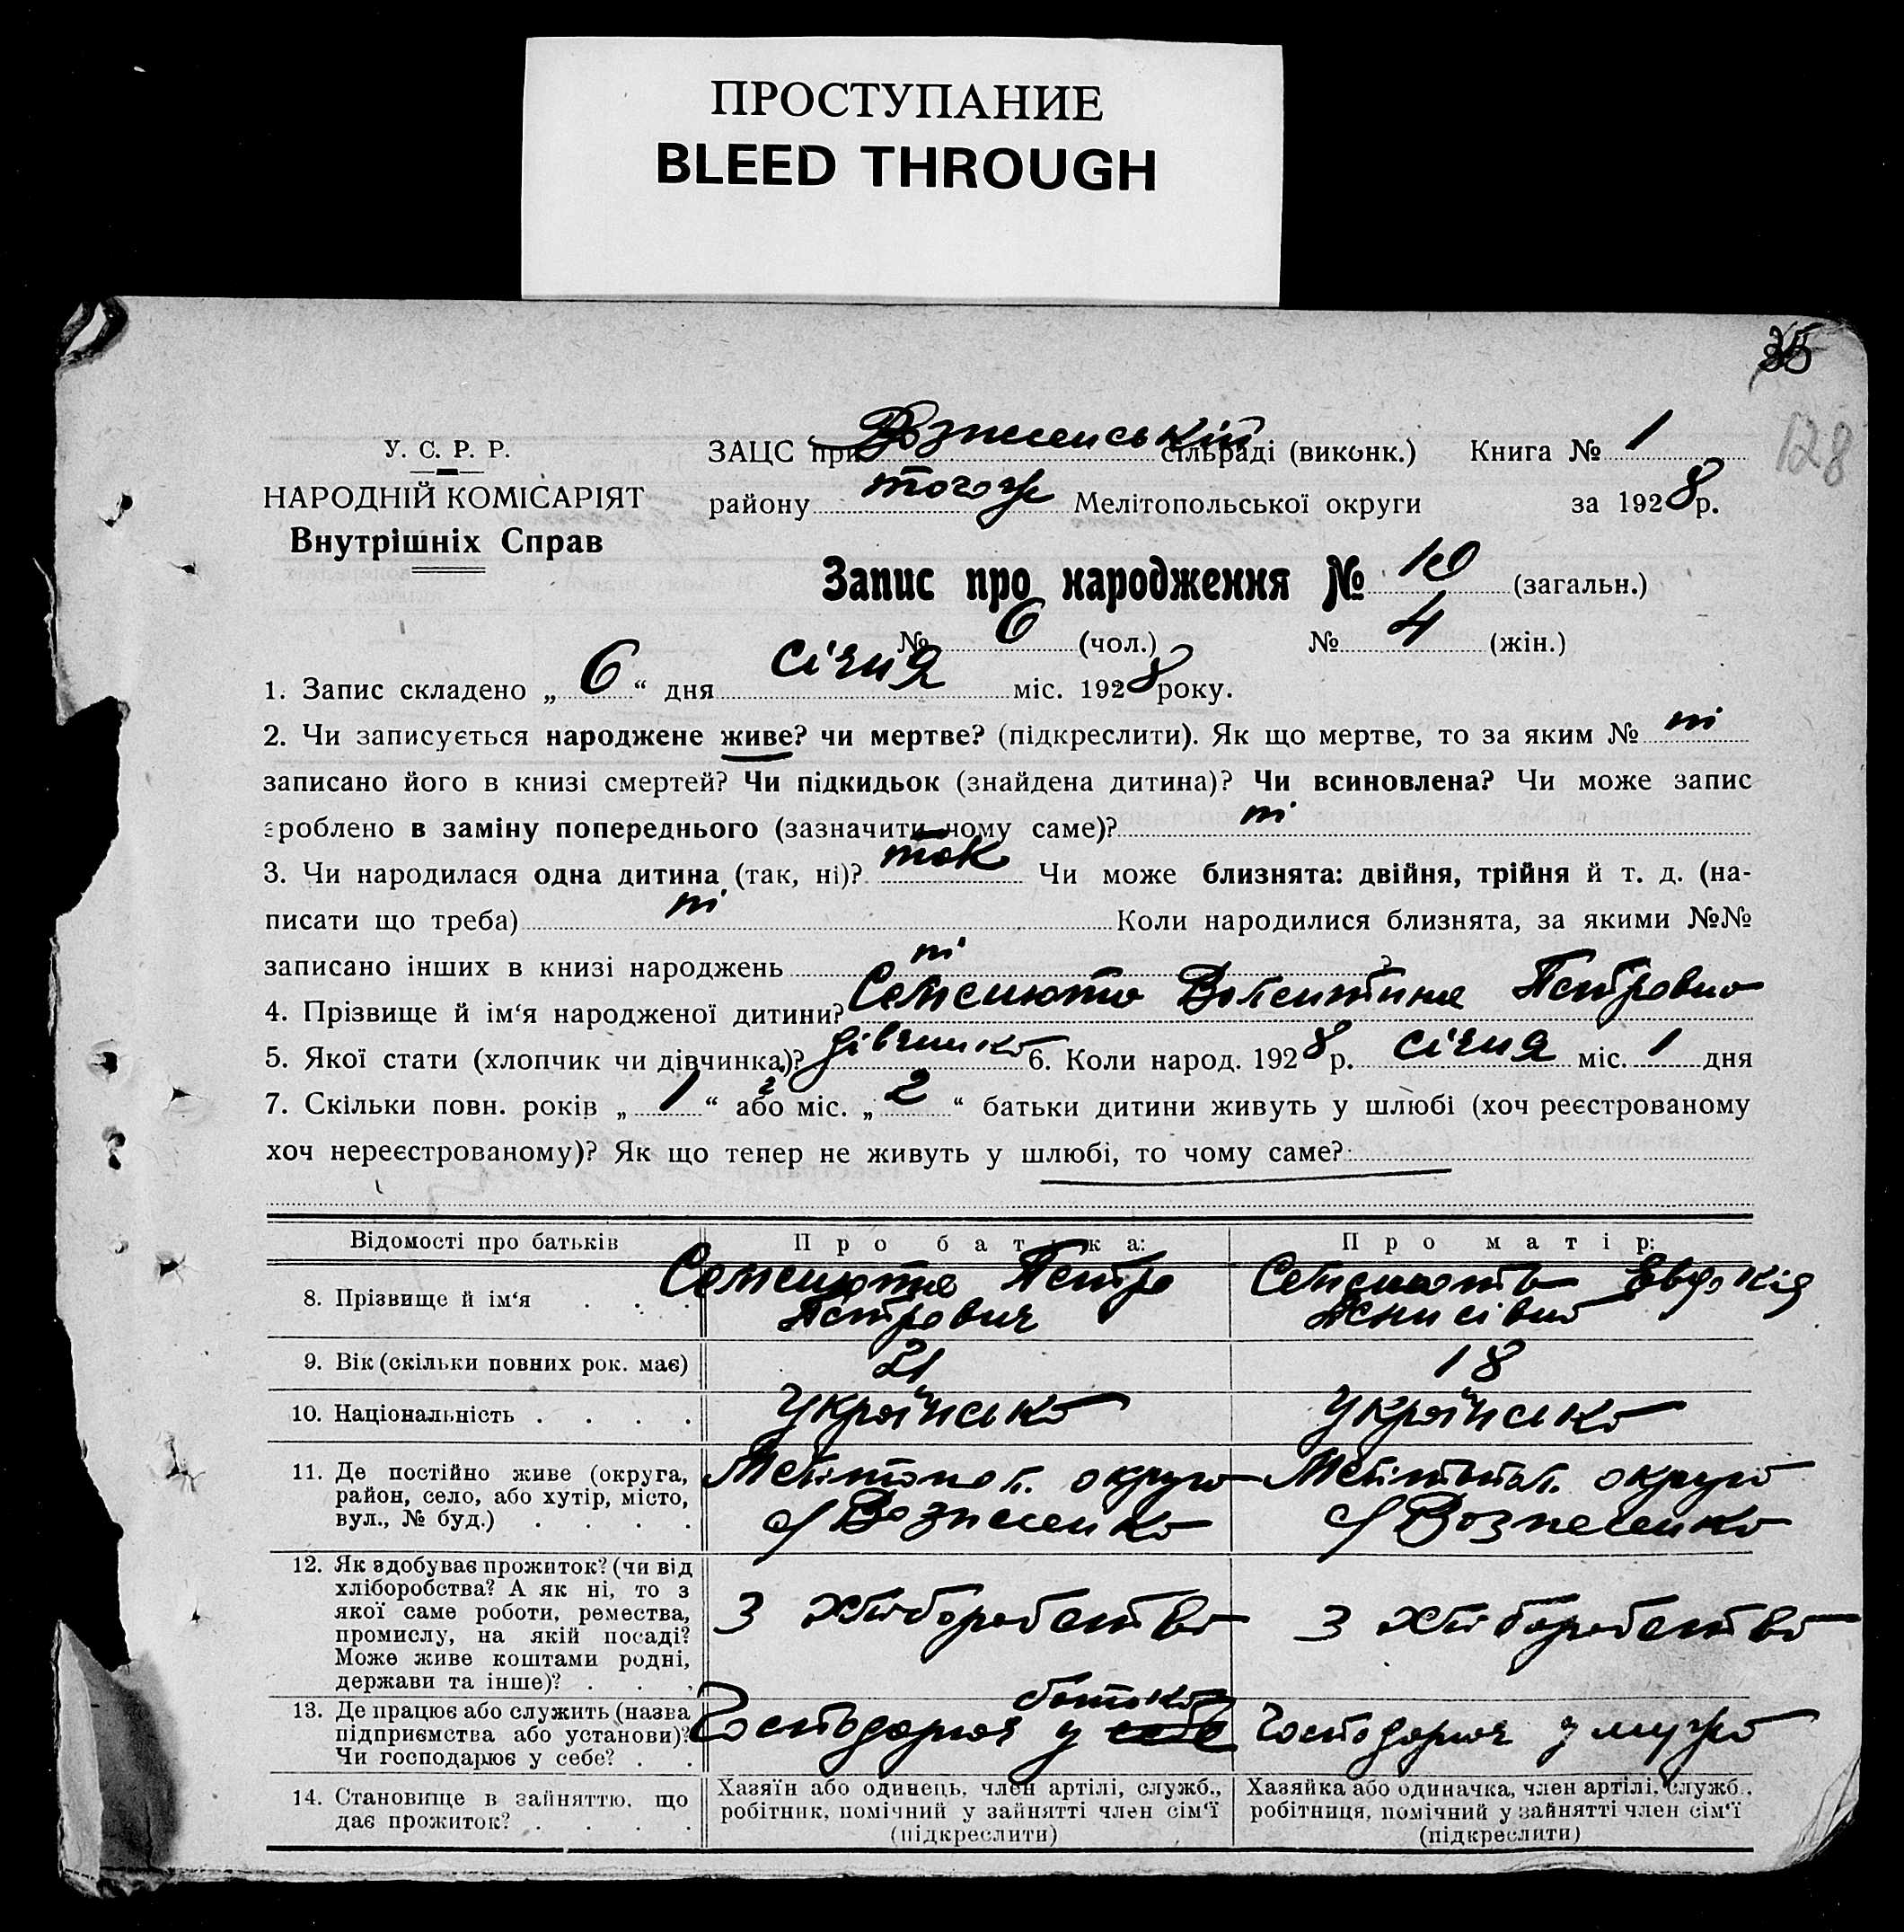 ПРОСТУПАНИЕ
BLEED THROUGH
35
128
У. С. Р. Р.
НАРОДНІЙ КОМІСАРІЯТ
Внутрішніх Справ
ЗАЦС при Вознесенській сільраді (виконк.) Книга № 1
району того ж Мелітопольської округи за 1928 р.
Запис про народження № 10 (загальн.)
№ 6 (чол.) № 4 (жін.)
1. Запис складено „ 6 “ дня січня міс. 1928 року.
2. Чи записується народжене живе? чи мертве? (підкреслити). Як що мертве, то за яким № ні
записано його в книзі смертей? Чи підкидьок (знайдена дитина)? Чи всиновлена? Чи може запис
зроблено в заміну попереднього (зазначити чому саме)? ні
3. Чи народилася одна дитина (так, ні)? так Чи може близнята: двійня, трійня й т. д. (на-
писати що треба) ні Коли народилися близнята, за якими №№
записано інших в книзі народжень ні ?
4. Прізвище й ім‘я народженої дитини? Валентина Петровна
5. Якої стати (хлопчик чи дівчинка)? дівчинка 6. Коли народ. 1928 р. січня міс. 1 дня
7. Скільки повн. років „ 1 “ або міс. „ 2 “ батьки дитини живуть у шлюбі (хоч реєстрованому
хоч нереєстрованому)? Як що тепер не живуть у шлюбі, то чому саме?
Відомості про батьків
Про батька:
Про матір:
8. Прізвище й ім‘я . . .
Петро
Петрович
Евдокія
9. Вік (скільки повних рок. має)
21
18
10. Національність . . . .
Українська
Українська
11. Де постійно живе (округа,
район, село, або хутір, місто,
вул., № буд.) . . . .
Мелітопол. округа
с/Вознесенка
Мелітопол. округа
с/Вознесенка
12. Як здобуває прожиток? (чи від
хліборобства? А як ні, то з
якої саме роботи, ремества,
промислу, на якій посаді?
Може живе коштами родні,
держави та інше)? . . .
З хліборобства
З хліборобства
13. Де працює або служить (назва
підприємства або установи)?
Чи господарює у себе? . .
батька
Господарює у себе
Господарює у мужа
14. Становище в зайняттю, що
дає прожиток? . . . .
Хазяїн або одинець, член артілі, служб.,
робітник, помічний у зайнятті член сім‘ї
(підкреслити)
Хазяйка або одиначка, член артілі, служб.,
робітниця, помічний у зайнятті член сім‘ї
(підкреслити)